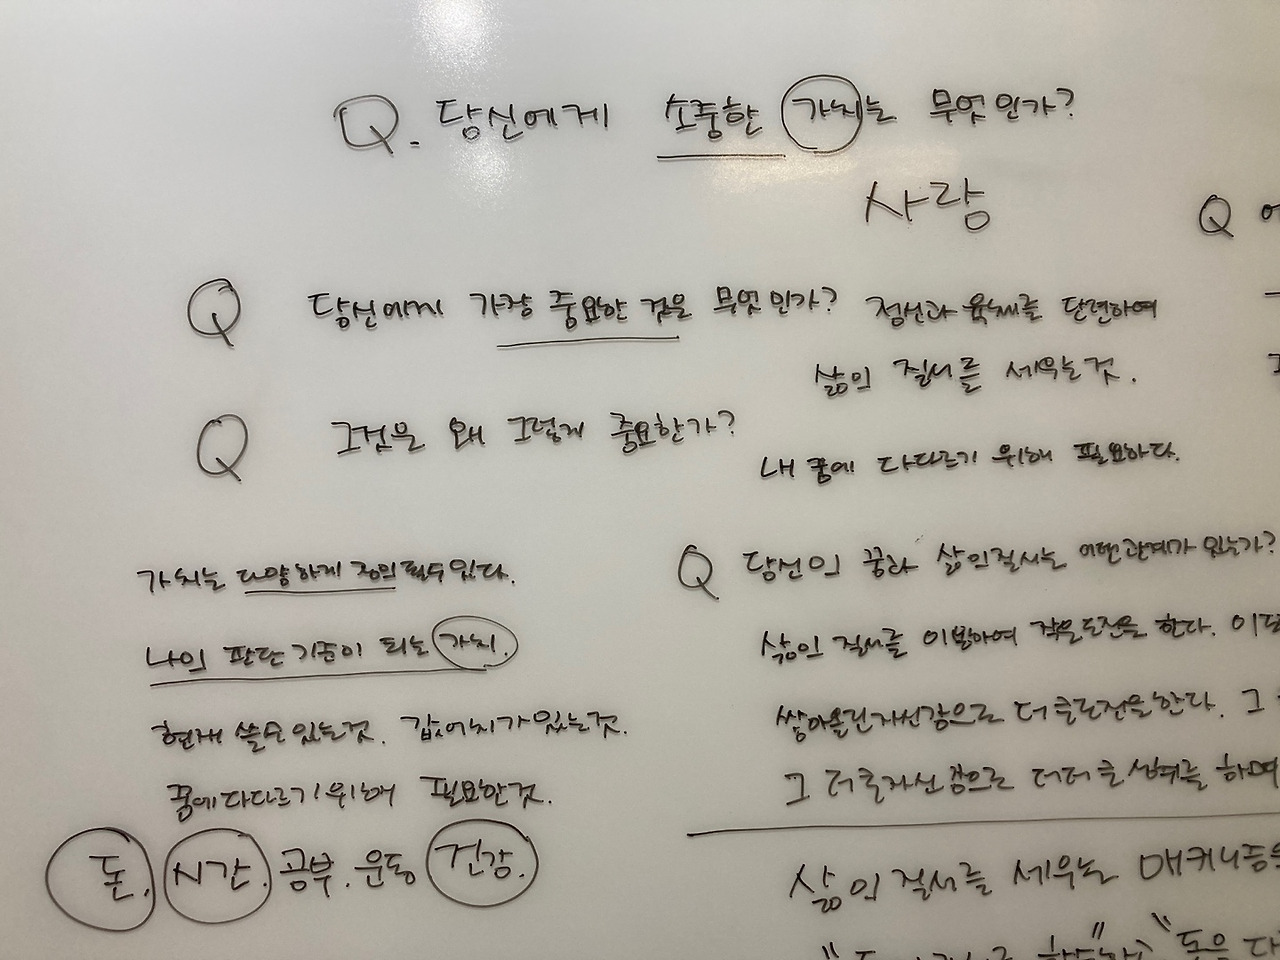 Q. 당신에게 소중한 가치는 무엇인가?
사랑
Q 당신에게 가장 중요한 것은 무엇인가? 정신과 육체를 단련하여
삶의 질서를 세우는것.
Q 그것은 왜 그렇게 중요한가?
내 꿈에 다다르기 위해 필요하다.
가치는 다양하게 정의 될수있다.
나의 판단기준이 되는 가치.
현재 쓸수있는것. 값어치가있는것.
꿈에다다르기위해 필요한것.
돈. 시간. 공부. 운동 건강.
Q
Q 당신의 꿈과 삶의질서는 어떤관계가 있는가?
삶의 질서를 이용하여 작은도전을 한다.
쌓아올린자신감으로 더 큰도전을한다. 그
그 더큰자신감으로 더더큰 성취를 하며
삶의 질서를 세우는 매커니즘